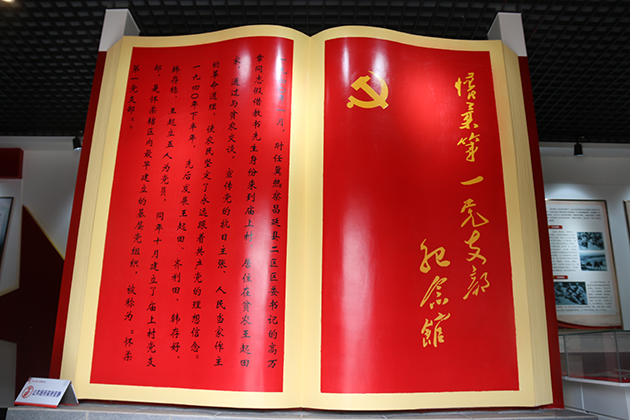 怀柔第一党支部
纪念馆
月，时任冀热察昌延县二区区委书记的高万
章同志假借教书先生身份来到庙上村，居住在贫农王起田
家，通过与贫农交谈，宣传党的抗日主张、人民当家作主
的革命道理，使农民坚定了永远跟着共产党的理想信念。
一九四〇年下半年，先后发展王起田、齐利田、韩存好、
韩存德、王起立五人为党员，同年十月建立了庙上村党支
部，是怀柔辖区内最早建立的基层党组织，被称为“怀柔
第一党支部”。